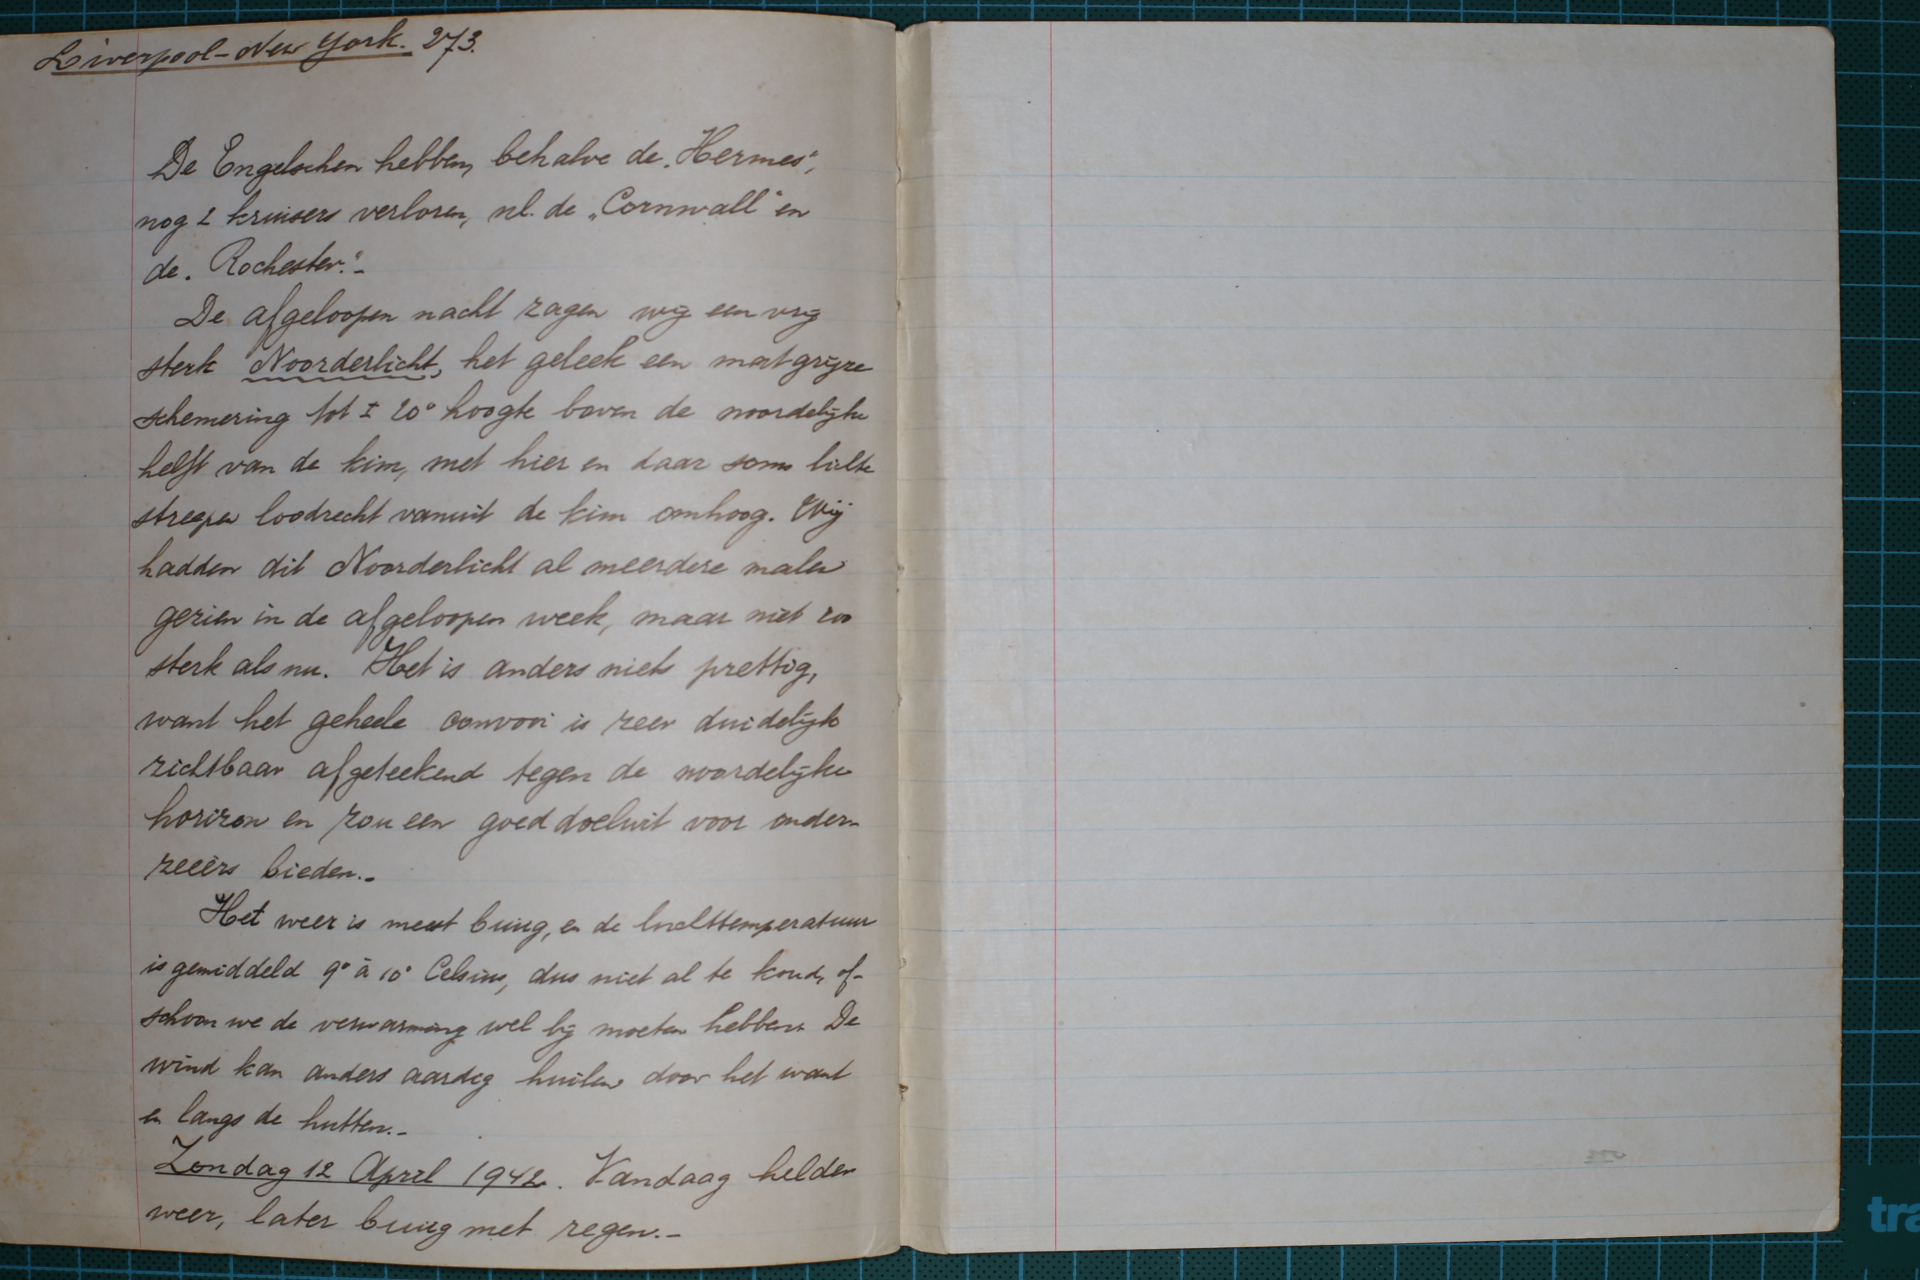 Liverpool-New York. 273.
De Engelschen hebben, behalve de „Hermes",
nog 2 kruisers verloren, nl. de „Cornwall" en
de „Rochester".-
De afgeloopen nacht zagen wij een vrij
sterk Noorderlicht, het geleek een matgrijze
schemering tot ± 20° hoogte boven de noordelijke
helft van de kim, met hier en daar soms lichte
streepen loodrecht vanuit de kim omhoog. Wij
hadden dit Noorderlicht al meerdere malen
gezien in de afgeloopen week, maar niet zoo
sterk als nu. Het is anders niets prettig,
want het geheele convooi is zeer duidelijk
zichtbaar afgeteekend tegen de noordelijke
horizon en zou een goed doelwit voor onder-
zeeërs bieden.-
Het weer is meest buiig, en de luchttemperatuur
is gemiddeld 9° à 10° Celsius, dus niet al te koud, of-
schoon we de verwarming wel bij moeten hebben. De
wind kan anders aardig huilen door het want
en langs de hutten.-
Zondag 12 April 1942. Vandaag helder
weer, later buiig met regen.-
tra